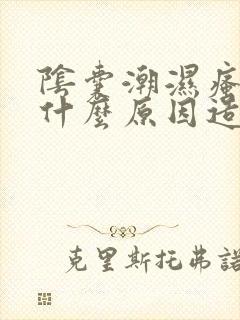 陰囊潮濕瘙
什麼原因造
克里斯托弗諾